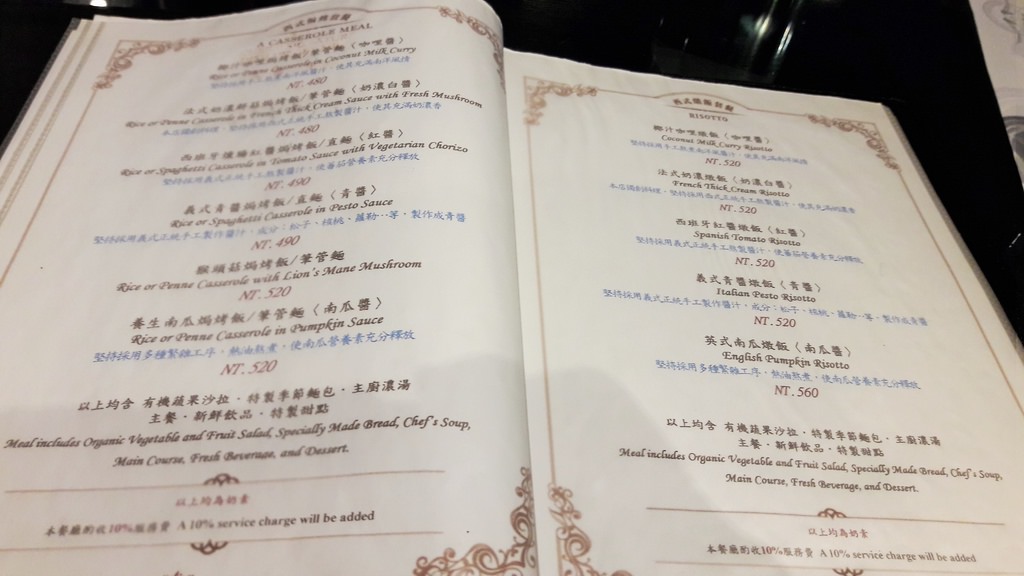 A CASSEROLE MEAL
椰汁咖哩焗烤飯/筆管麵〈咖哩醬〉
Rice or Penne Casserole in Coconut Milk Curry
NT. 480
法式奶濃鮮菇焗烤飯/筆管麵〈奶濃白醬〉
Rice or Penne Casserole in French Thick Cream Sauce with Fresh Mushroom
NT. 480
西班牙臘腸紅醬焗烤飯/直麵〈紅醬〉
Rice or Spaghetti Casserole in Tomato Sauce with Vegetarian Chorizo
堅持採用義式正統手工熬製醬汁，使蕃茄營養素充分釋放
NT. 490
義式青醬焗烤飯/直麵〈青醬〉
Rice or Spaghetti Casserole in Pesto Sauce
堅持採用義式正統手工製作醬汁，成分：松子、核桃、蘿勒…等，製作成青醬
NT. 490
猴頭菇焗烤飯/筆管麵
Rice or Penne Casserole with Lion's Mane Mushroom
NT. 520
養生南瓜焗烤飯/筆管麵〈南瓜醬〉
Rice or Penne Casserole in Pumpkin Sauce
堅持採用多種繁雜工序，熱油熬煮，使南瓜營養素充分釋放
NT. 520
以上均含 有機蔬果沙拉．特製季節麵包．主廚濃湯
主餐．新鮮飲品．特製甜點
Meal includes Organic Vegetable and Fruit Salad, Specially Made Bread, Chef's Soup,
Main Course, Fresh Beverage, and Dessert.
以上均為奶素
本餐廳酌收10%服務費 A 10% service charge will be added
RISOTTO
椰汁咖哩燉飯〈咖哩醬〉
Coconut Milk Curry Risotto
NT.520
法式奶濃燉飯〈奶濃白醬〉
French Thick Cream Risotto
NT.520
西班牙紅醬燉飯〈紅醬〉
Spanish Tomato Risotto
堅持採用義式正統手工熬製醬汁，使蕃茄營養素充分釋放
NT.520
義式青醬燉飯〈青醬〉
Italian Pesto Risotto
堅持採用義式正統手工製作醬汁，成分：松子、核桃、蘿勒…等，製作成青醬
NT.520
英式南瓜燉飯〈南瓜醬〉
English Pumpkin Risotto
堅持採用多種繁雜工序，熱油熬煮，使南瓜營養素充分釋放
NT.560
以上均含 有機蔬果沙拉．特製季節麵包．主廚濃湯
主餐．新鮮飲品．特製甜點
Meal includes Organic Vegetable and Fruit Salad, Specially Made Bread, Chef's Soup,
Main Course, Fresh Beverage, and Dessert.
以上均為奶素
本餐廳酌收10%服務費 A 10% service charge will be added